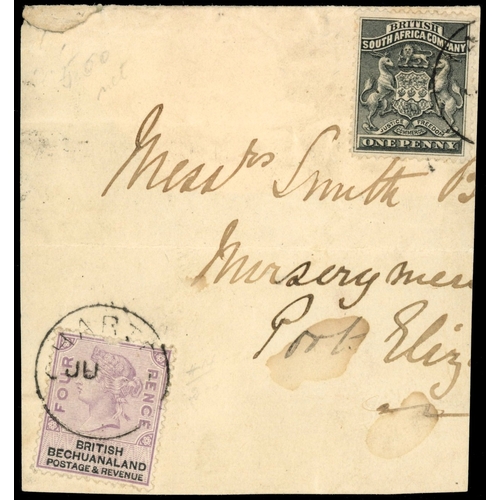 BRITISH
SOUTH AFRICA COMPANY
JUSTICE FREEDOM
COMMERCE
ONE PENNY
Messrs Smith B
Nurserymen
Port Eliz
JU
FOUR PENCE
BRITISH
BECHUANALAND
POSTAGE & REVENUE